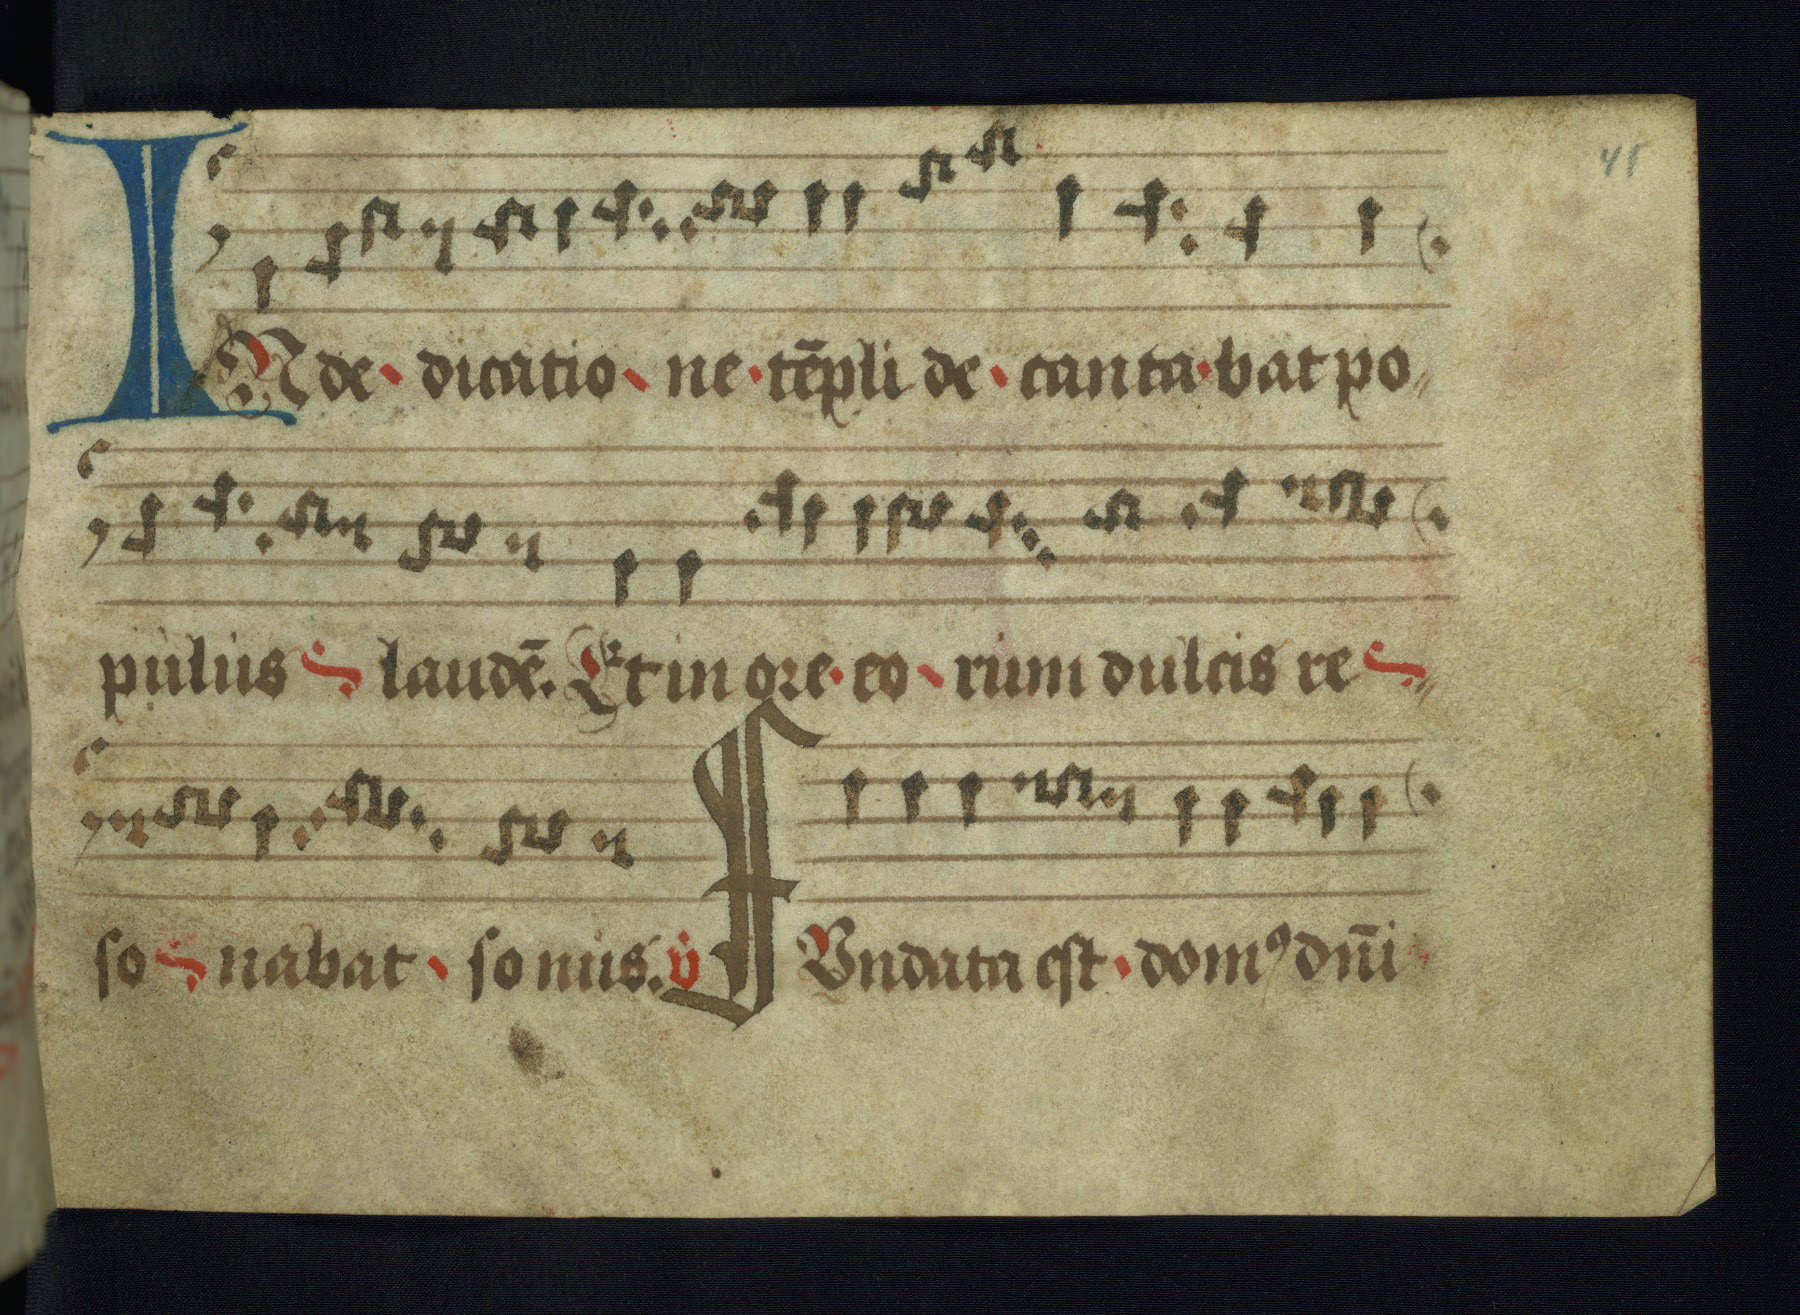 41
IN de dicatio ne tēpli de canta bat po
pulus laudē. Et in ore eo rum dulcis re
so nabat so nus. v̇ FUndata est domꝰ dn̄i